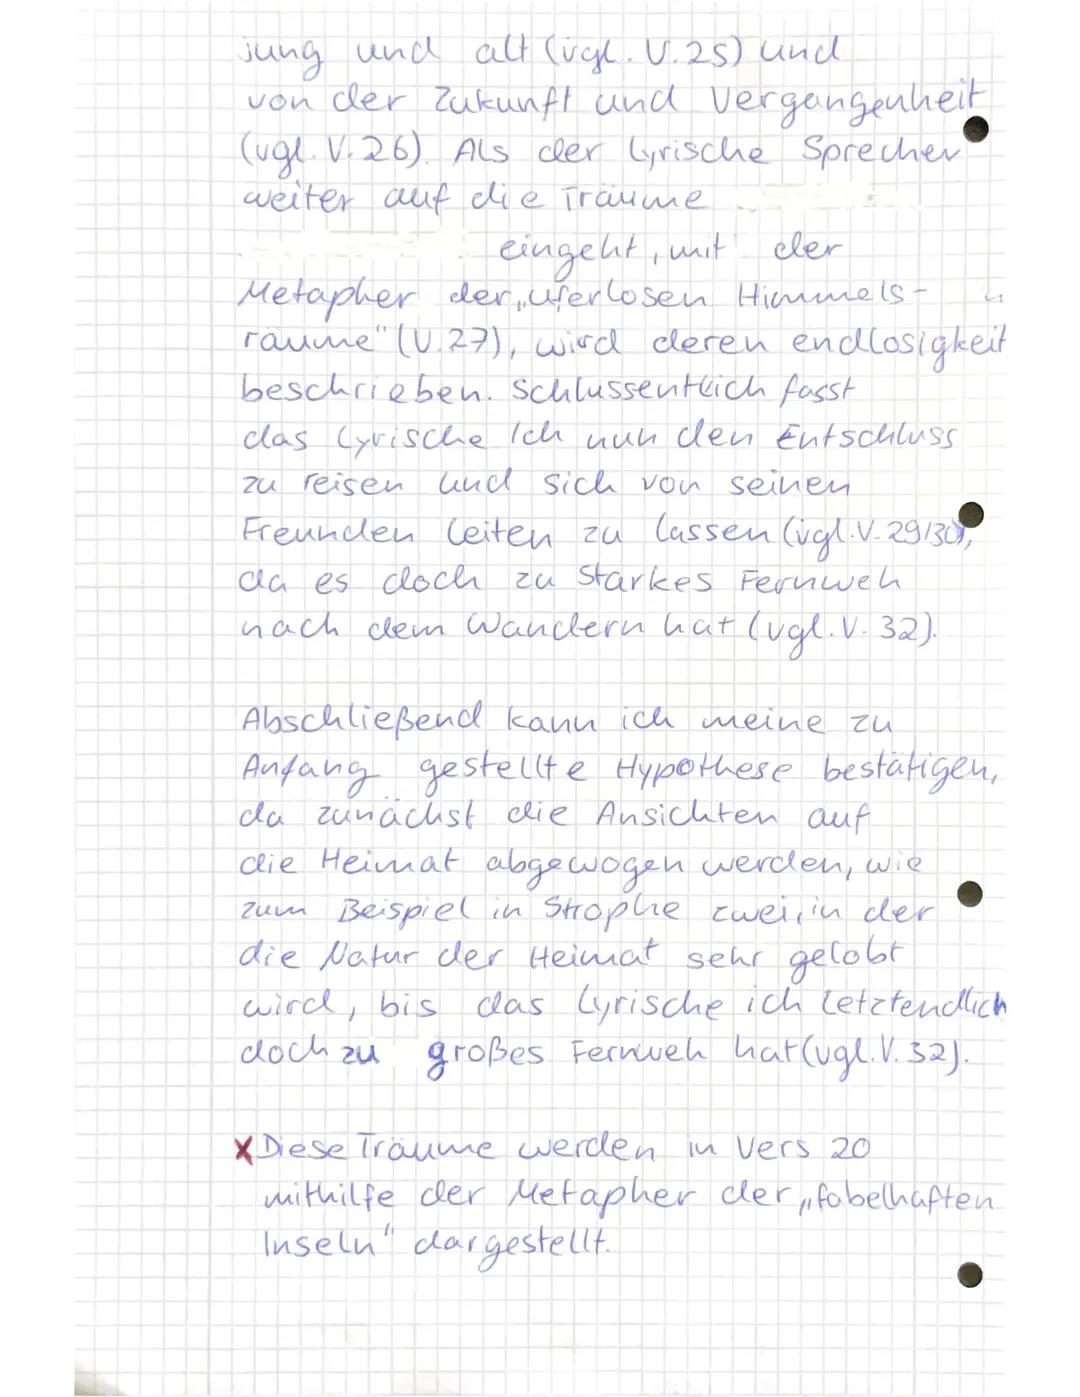 jung und alt (vgl. V. 25) und
von der Zukunft und Vergangenheit
(vgl. V. 26). Als der lyrische Sprecher
weiter auf die Träume
eingeht, mit der
Metapher der „uferlosen Himmels-
räume" (V. 27), wird deren endlosigkeit
beschrieben. Schlussentlich fasst
das lyrische Ich nun den Entschluss
zu reisen und sich von seinen
Freunden leiten zu lassen (vgl. V. 29/30),
da es doch zu starkes Fernweh
nach dem Wandern hat (vgl. V. 32).
Abschließend kann ich meine zu
Anfang gestellte Hypothese bestätigen,
da zunächst die Ansichten auf
die Heimat abgewogen werden, wie
zum Beispiel in Strophe zwei, in der
die Natur der Heimat sehr gelobt
wird, bis das lyrische ich letztendlich
doch zu großes Fernweh hat (vgl. V. 32).
X Diese Träume werden in Vers 20
mithilfe der Metapher der „fabelhaften
Inseln" dargestellt.